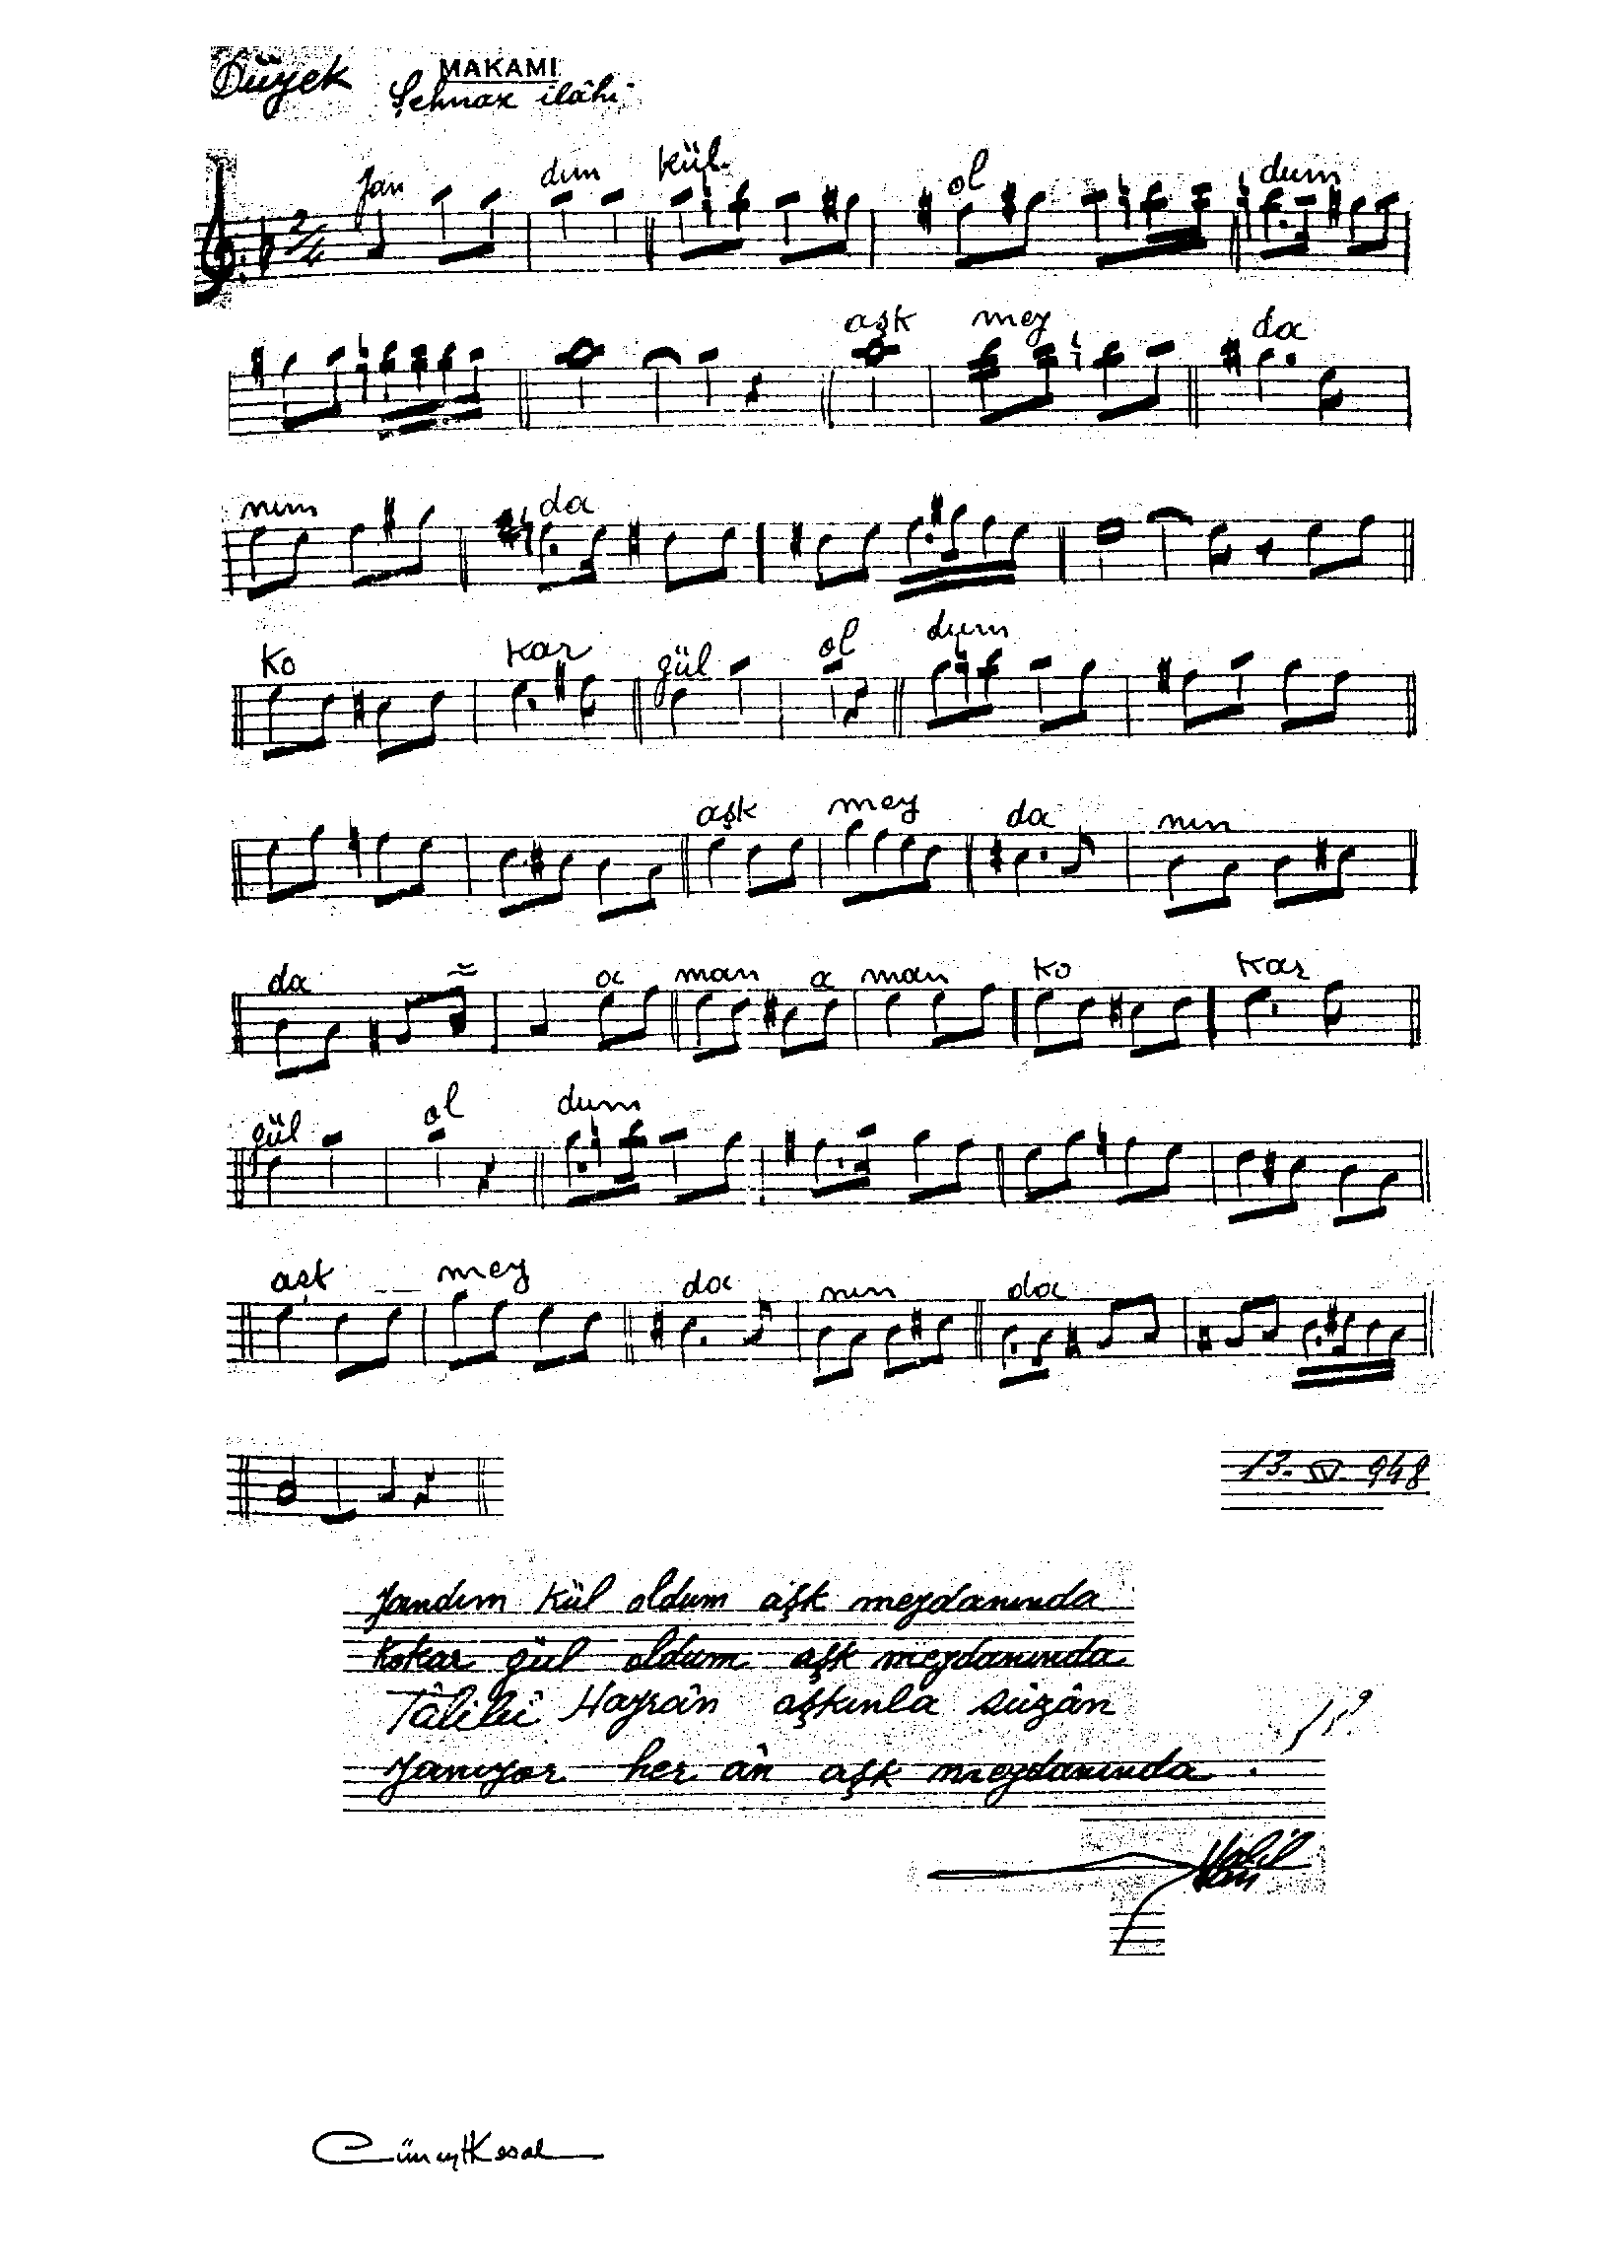 Düyek
MAKAMI
Şehnaz ilâhi
2/4
Yan dım kül ol dum
aşk mey da
nın da
ko kar gül ol dum
aşk mey da nın
da a man a man ko kar
gül ol dum
aşk mey da nın da
13. IV 948
Yandım kül oldum aşk meydanında
Kokar gül oldum aşk meydanında
Tâlibû Hayrân aşkınla sûzân
Yanıyor her ân aşk meydanında.
Halil Can
Cüneyt Kosal